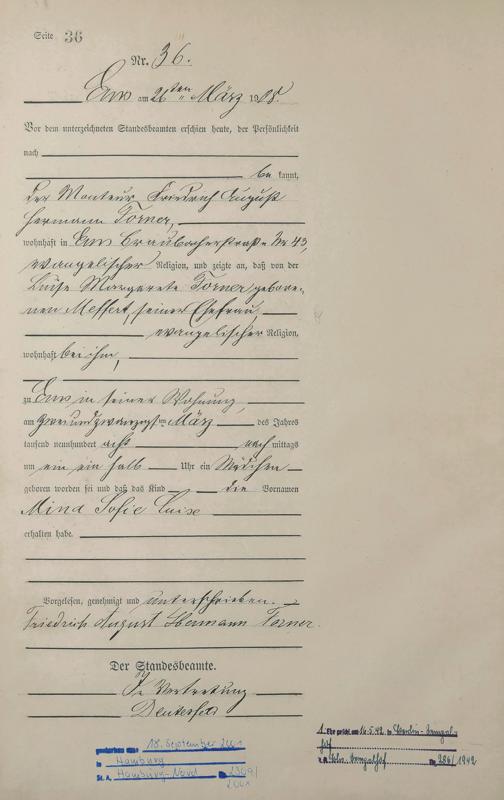 Seite 36
Nr. 36.
Ems am 26ten März 1908.
Vor dem unterzeichneten Standesbeamten erschien heute, der Persönlichkeit
nach
be kannt,
der Monteur Friedrich August
Hermann Forner,
wohnhaft in Ems Braubacherstraße Nr 43,
evangelischer Religion, und zeigte an, daß von der
Luise Margarete Forner gebore-
nen Meffert, seiner Ehefrau,
evangelischer Religion,
wohnhaft bei ihm,
zu Ems in seiner Wohnung,
am zweiundzwanzigsten März des Jahres
tausend neunhundert acht nach mittags
um ein ein halb Uhr ein Mädchen
geboren worden sei und daß das Kind die Vornamen
Mina Sofie Luise
erhalten habe.
Vorgelesen, genehmigt und unterschrieben.
Friedrich August Hermann Forner.
Der Standesbeamte.
In Vertretung
gestorben am 18. September 2001
in Hamburg
St. A. Hamburg-Nord Nr. 2309/
2001
1. Ehe geschl. am 16.5.42 in Berlin-Tempel-
hof
Nr. 286/1942